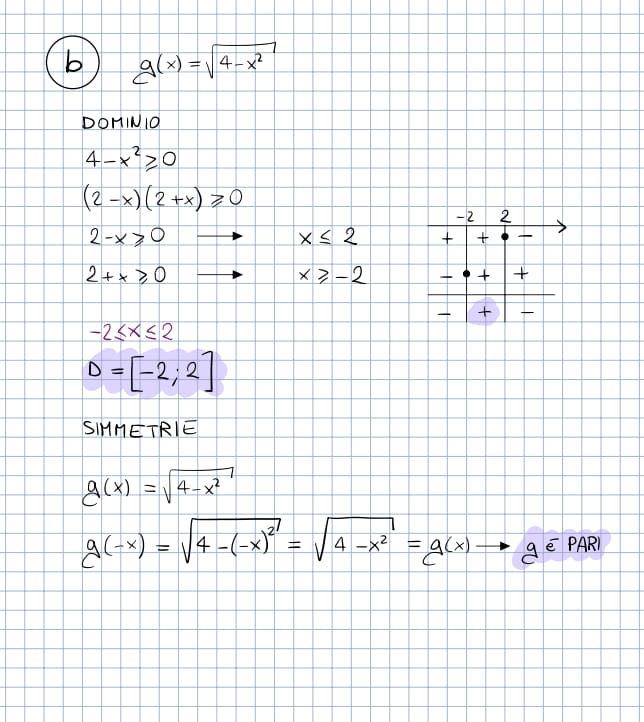 b g(x) = √4-x²
DOMINIO
4-x² ⩾ 0
(2-x)(2+x) ⩾ 0
2-x ⩾ 0 → x ≤ 2
2+x ⩾ 0 → x ⩾ -2
-2 2
+ + -
- + +
- + -
-2≤x≤2
D = [-2; 2]
SIMMETRIE
g(x) = √4-x²
g(-x) = √4-(-x)² = √4-x² = g(x) → g é PARI